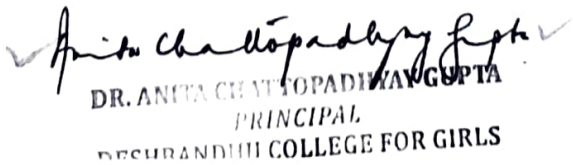 Anita Chattopadhyay Gupta
DR. ANITA CHATTOPADHYAY GUPTA
PRINCIPAL
DESHBANDHU COLLEGE FOR GIRLS